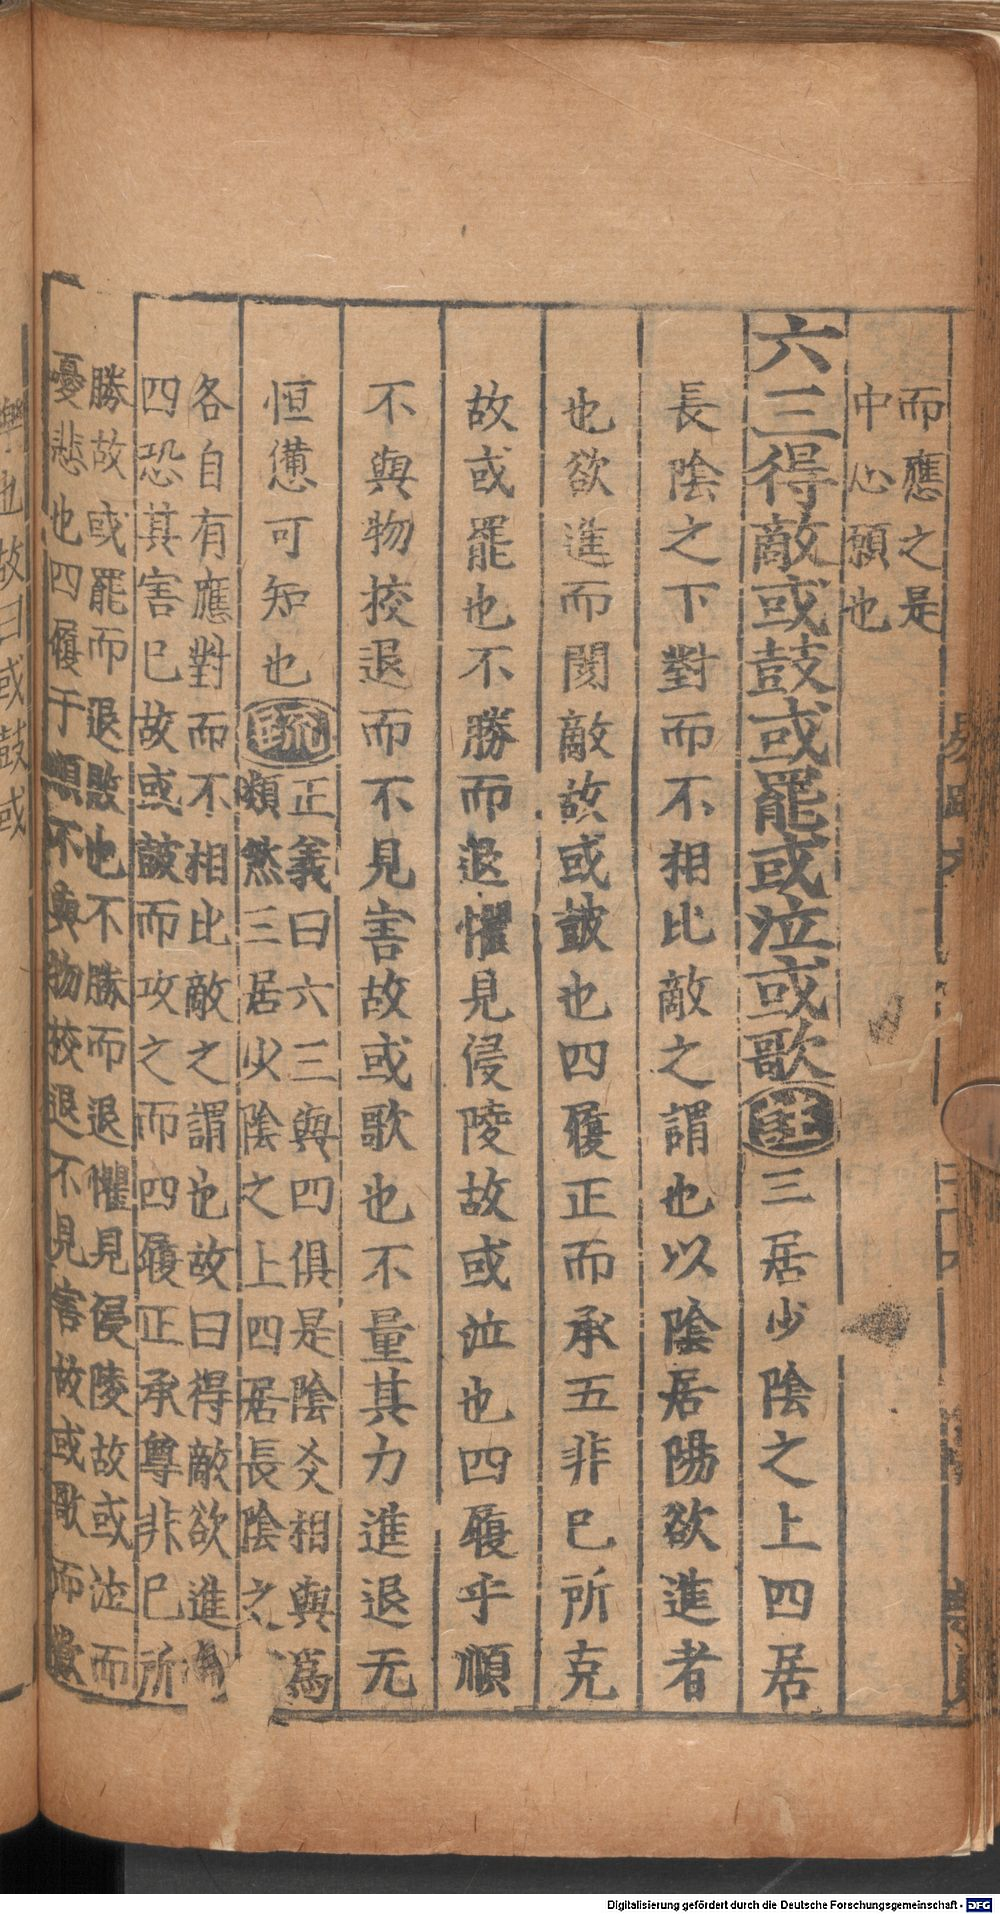 而應之是
中心願也
六三得敵或鼓或罷或泣或歌注三居少陰之上四居
長陰之下對而不相比敵之謂也以陰居陽欲進者
也欲進而閡敵故或鼓也四履正而承五非已所克
故或罷也不勝而退懼見侵陵故或泣也四履乎順
不與物挍退而不見害故或歌也不量其力進退无
恒憊可知也疏
正義曰六三與四俱是陰爻相與爲
類然三居少陰之上四居長陰之
各自有應對而不相比敵之謂也故曰得敵欲進
四恐其害已故或鼓而攻之而四履正承尊非已所
勝故或罷而退敗也不勝而退懼見侵陵故或泣而
憂悲也四履于順不與物挍退不見害故或歌而歡
樂也故曰或鼓或
Digitalisierung gefördert durch die Deutsche Forschungsgemeinschaft - DFG